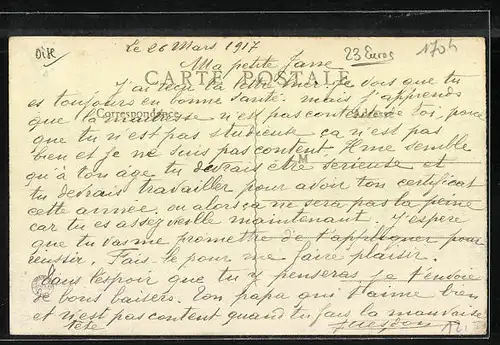 Le 26 Mars 1917
23 Euros
Ma petite
CARTE POSTALE
J'ai reçu ta lettre hier je vois que tu
es toujours en bonne santé. mais j'apprends
que la n'est pas contente de toi, parce
Correspondance
que tu n'est pas studieuse ça n'est pas
bien et je ne suis pas content. Il me semble
qu'à ton age tu devrais être serieuse et
M
tu devrais travailler pour avoir ton certificat
cette année. ou alors ça ne sera pas la peine
car tu es assez vieille maintenant. J'espère
que tu vas me promettre de t'appliquer pour
reussir. Fais le pour me faire plaisir.
Dans l'espoir que tu y penseras je t'envoie
de bons baisers. Ton papa qui t'aime bien
et n'est pas content quand tu fais la mauvaise
tête